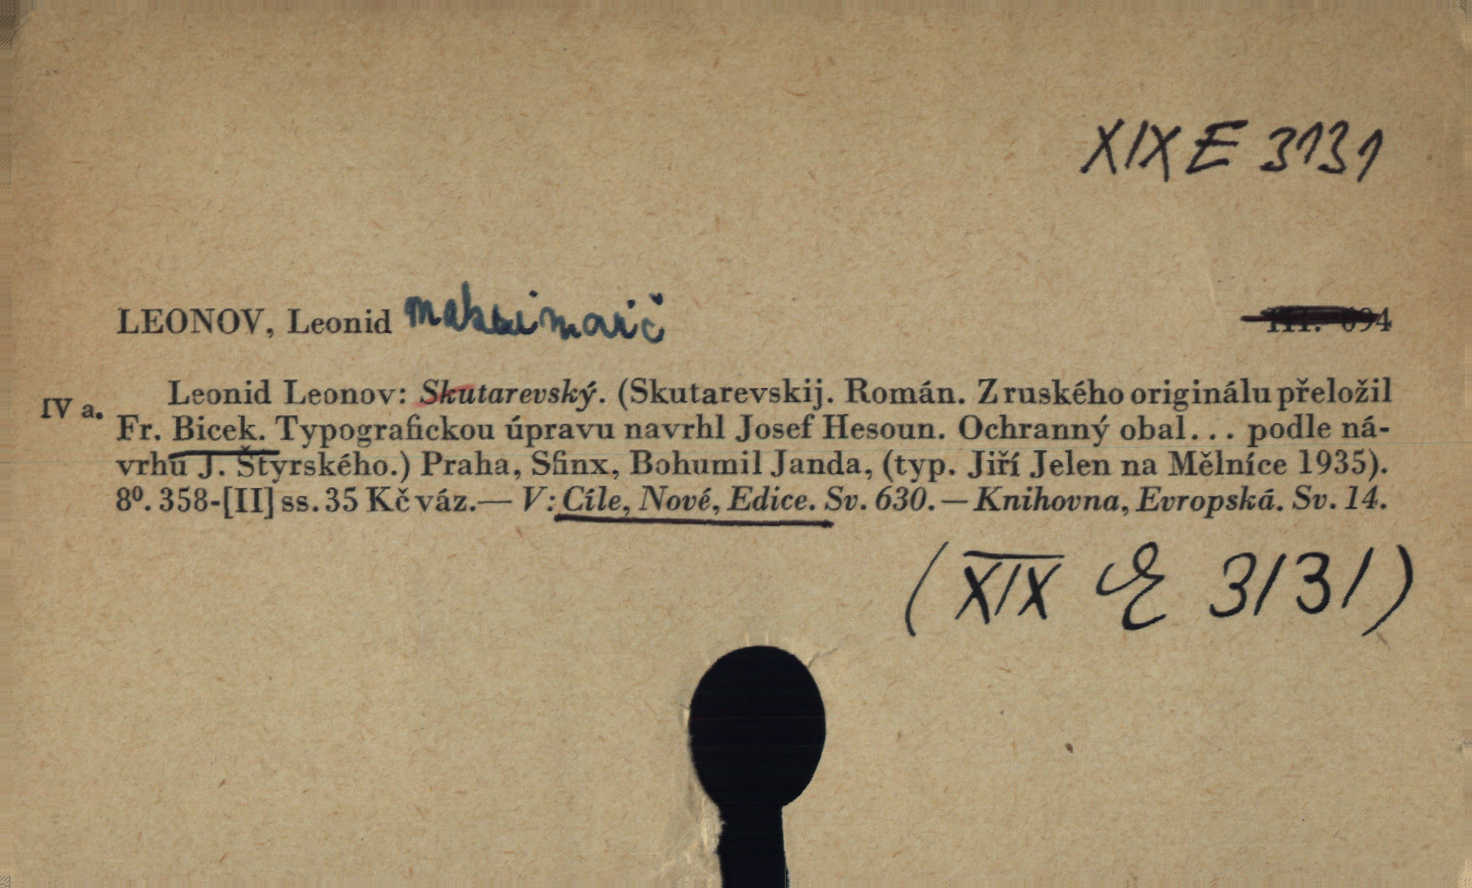 XIX E 3131
LEONOV, Leonid Maksimovič
IV a.
Leonid Leonov: Skutarevský. (Skutarevskij. Román. Z ruského originálu přeložil
Fr. Bicek. Typografickou úpravu navrhl Josef Hesoun. Ochranný obal... podle ná-
vrhu J. Štyrského.) Praha, Sfinx, Bohumil Janda, (typ. Jiří Jelen na Mělníce 1935).
8⁰. 358-[II] ss. 35 Kč váz.— V: Cíle, Nové, Edice. Sv. 630. — Knihovna, Evropská. Sv. 14.
(XIX E 3131)